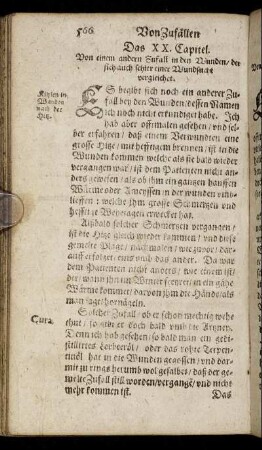 566. Von Zufällen
Das XX. Capitel.
Von einem andern Zufall in den Wunden / der
sich auch schier einer Wundsucht
vergleichet.
in
Wunden
nach der
Hitz.
ES begibt sich noch ein anderer Zu-
fall bey den Wunden / dessen Namen
ich noch nicht erkundiget habe. Ich
hab aber offtmalen gesehen / und sel-
ber erfahren / daß einem Verwundten eine
grosse Hitz mit hefftigem brennen / ist in die
Wunden kommen welche als sie bald wieder
vergangen war / ist dem Patienten nicht an-
ders gewesen / als ob ihm ein gangen hauffen
Würme oder Ameyssen in der wunden umb-
lieffen : welche ihm grosse Schmertzen und
hefftige Wehtagen erwecket hat.
Alßbald solcher Schmertzen vergangen /
ist die Hitz gleich wieder kommen / und die so
gemelte Plage / nachmalen / wie zuvor / dar-
auff erfolget / eins umb das ander. Da war
dem Patienten nicht anders / wie einem ist /
der / wann ihm im Winter frieret / an ein gähe
Wärme kommet / darvon ihm die Hände / als
man sagt / hornägeln.
Cura.
Solcher Zufall / ob er schon mechtig wehe
thut / so
Denn ich hab gesehen / so bald man ein gedi-
stilliertes Lorberöl / oder das rohte Terpen-
tinöl hat in die Wunden gegossen / und dar-
mit zu rings herumb wol gesalbet / daß der ge-
melte Zufall still worden / vergangē / und nicht
mehr kommen ist.
Das